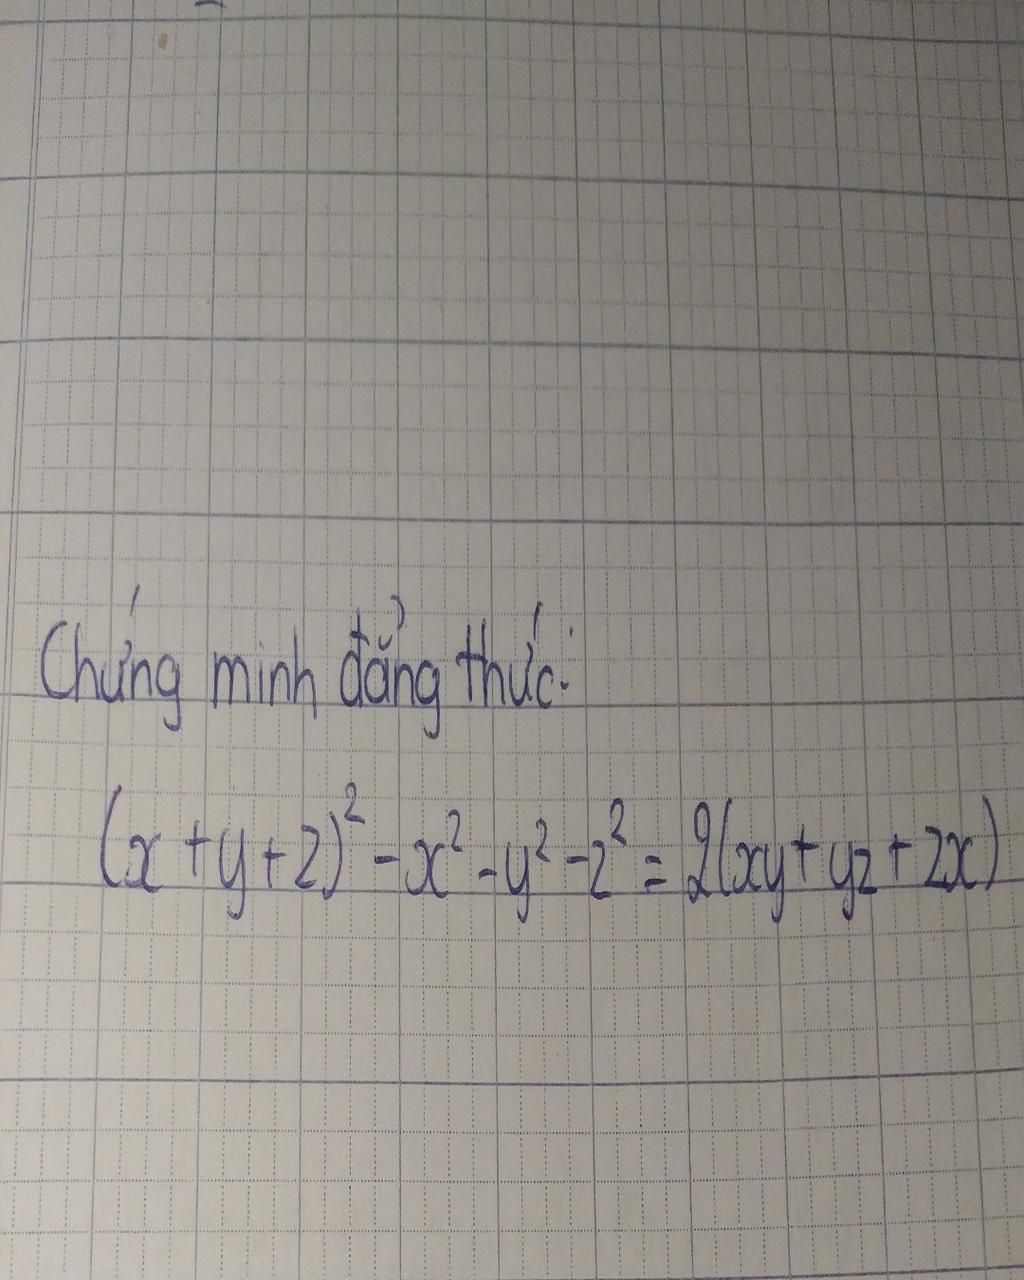 Chứng minh đẳng thức:
(x+y+z)² - x² - y² - z² = 2(xy + yz + zx)